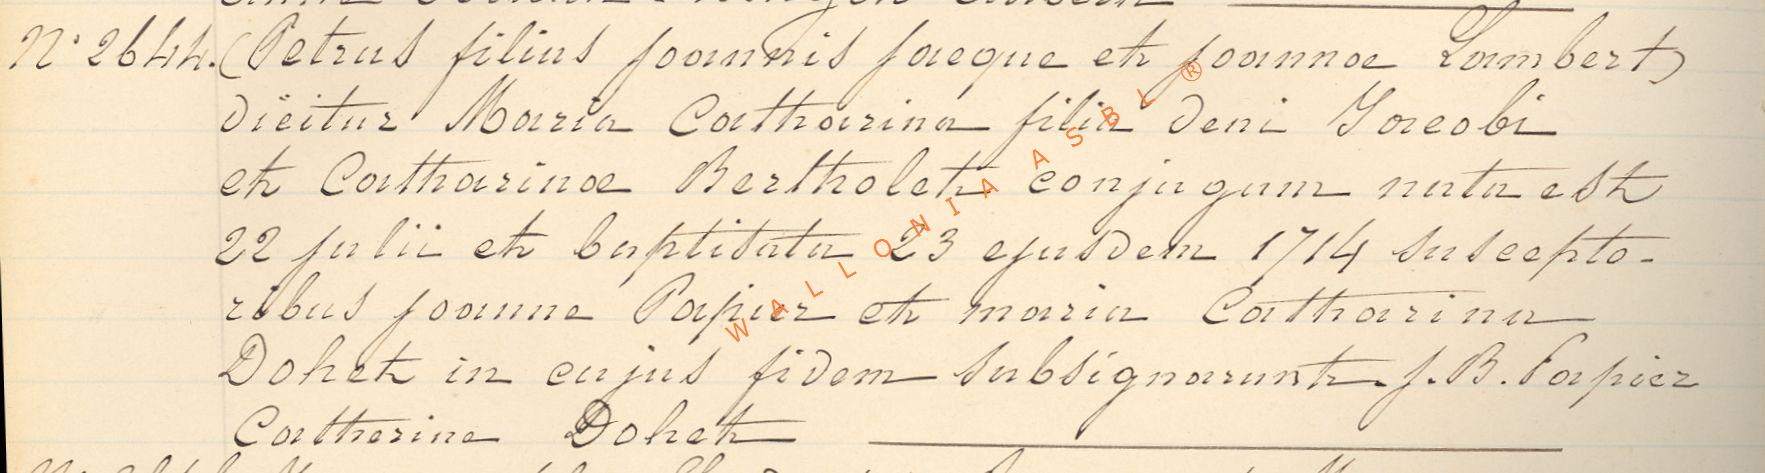 N° 2644. (Petrus filius joannis jacque et joannae Lambert)
dicitur Maria Catharina filia deni Jacobi
et Catharinae Bertholet conjugum nata est
22 julii et baptisata 23 ejusdem 1714 suscepto-
ribus joanne Papier et maria Catharina
Dohet in cujus fidem subsignarunt. J. B. Papier
Catherine Dohet
WALLONIA ASBL ®